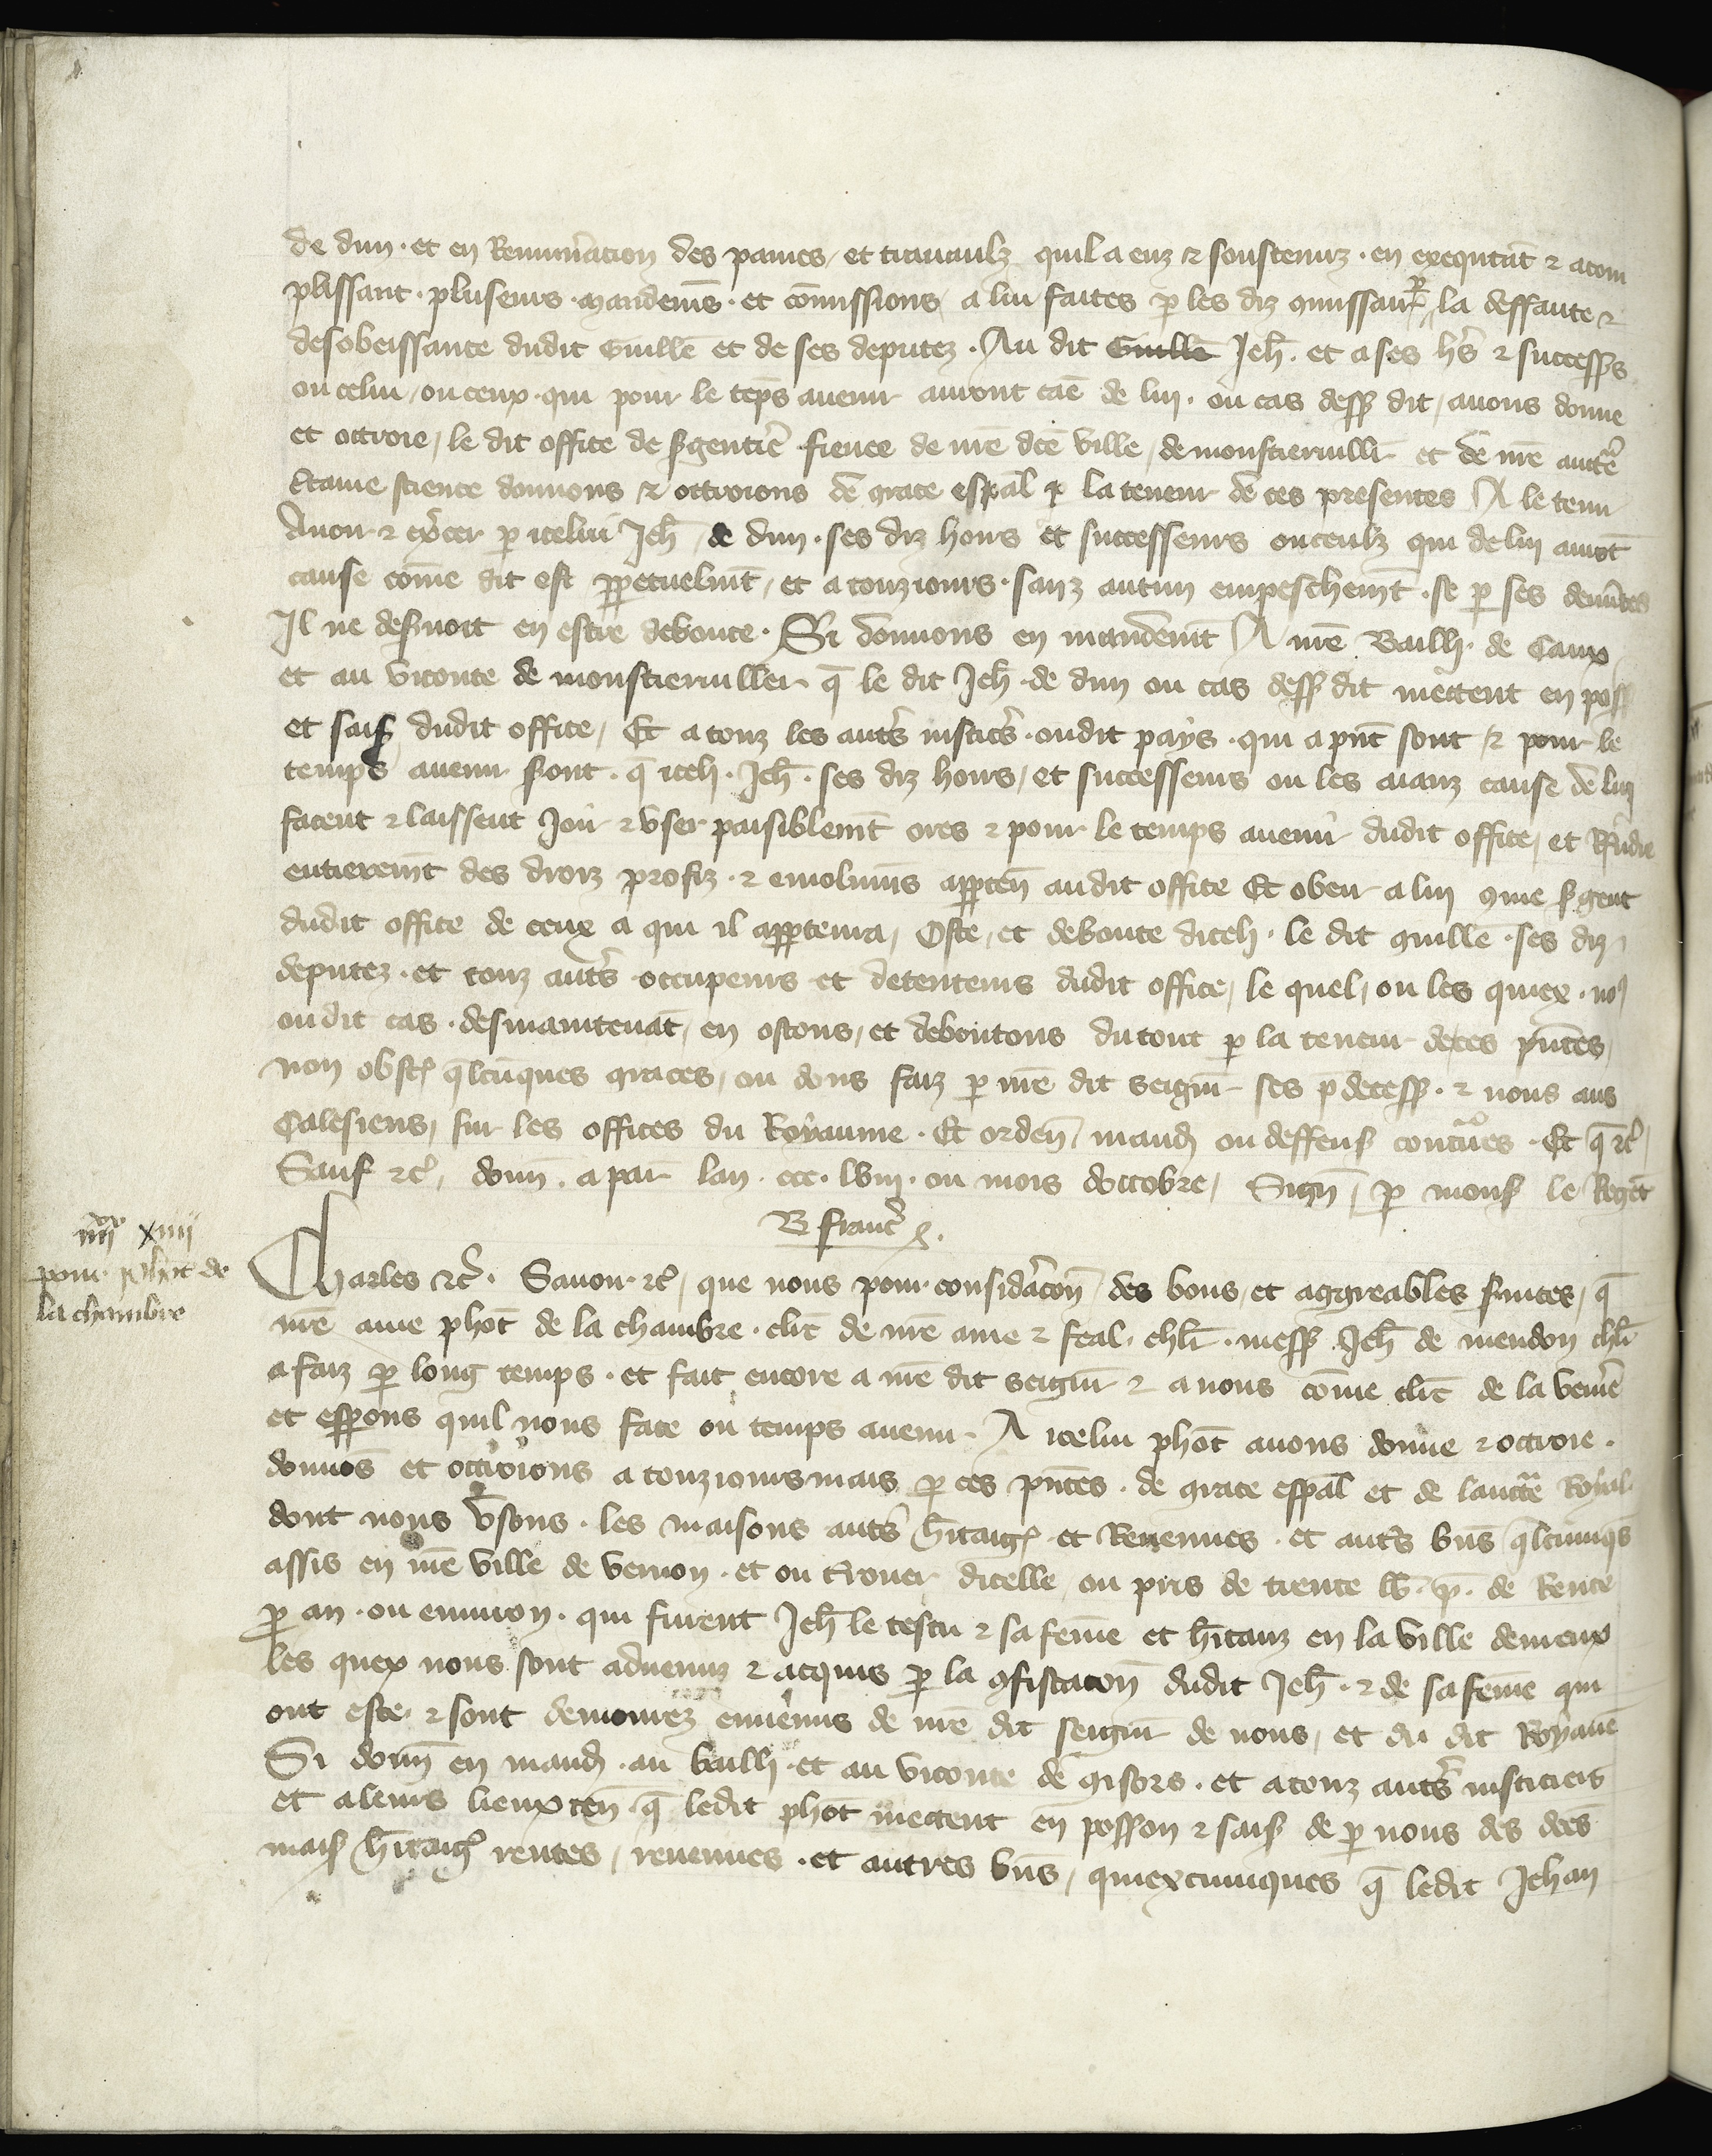 de dun . et en Remunˀacion des paines / et trauaulz quil a euz ⁊ soustenuz . en exequtāt ⁊ acom
plissant . pluseurs . mandemēs . et cōmissions / a lui faites ꝑ les diz ꝯmissair̄ / ꝑ la deffaute ⁊
desobeissance dudit Guillē et de ses deputez . Au dit Guillē Jeh̄ . et a ses hˀs ⁊ successˀs
ou celui / ou ceux . qui pour le tēps auenir auront cāe de lui . ou cas dess dit / auons donne
et octroie / le dit office de sˀgentˀie fieuee de nrē dcē ville / de monstieruillˀ et de nrē auctˀe
Ctaine science donnons ⁊ octroions de grace esp̄al ꝑ la teneur de ces presentes A le tenir
Auoir ⁊ exˀcer ꝑ icelui Jeh̄ de dun . ses diz hoirs et successeurs ou ceulz qui de lui aurōt
cause cōme dit est ꝑpetuelmt̄ / et a touziours . sanz aucun empeschemt̄ . se ꝑ ses demˀites
Il ne desˀuoit en estre deboute . Si donnons en mandemt̄ A nrē Bailli . de Caux
et au viconte de monstieruiller q̄ le dit Jeh̄ . de dun ou cas dess dit mettent en poss
et sais dudit office / Et a touz les autˀs iusticˀs . oudit pays . qui a pn̄t sont / ⁊ pour le
temps auenir sˀont . q̄ iceli . Jeh̄ . ses diz hoirs / et successeurs ou les aianz cause de lui
facent ⁊ laissent Joir ⁊ vser paisiblemt̄ ores ⁊ pour le temps auenir dudit office / et Rn̄dre
entieremt̄ des droiz profiz . ⁊ emolumēs apꝑten̄ audit office Et obeir a lui ꝯme sˀgent
dudit office de ceux a qui il apꝑtenra / Oste / et deboute diceli . le dit guille . ses diz
deputez . et touz autˀs occupeurs et detenteurs dudit office / le quel / ou les quiex . noꝰ
oudit cas . desmaintenāt / en ostons / et deboutons du tout ꝑ la teneur de ces pn̄tes /
non obstˀ q̄lcūques graces / ou dons faiz ꝑ nrē dit seignˀ ses p̄decess . ⁊ nous aus
Calesiens / sur les offices du Royaume . Et orden̄ / mand̄ ou deffens contˀires . Et q̄ ⁊cˀ /
Sauf ⁊cˀ / donn̄ . a paris lan . ccc . lviij . ou mois doctobre / Sign̄ / ꝑ mons le Regēt
B francˀ .
iiijˣˣ xiiij
pour phōt de
la chambre
Charles ⁊cˀ . Sauoir ⁊cˀ / que nous pour considˀacōn des bons / et aggreables sˀuices / q̄
nrē ame phōt de la chambre . clerc̄ de nrē ame ⁊ feal . chlr̄ . mess Jeh̄ de meudon chlr̄
a faiz ꝑ long temps . et fait encore a nrē dit seignˀ ⁊ a nous cōme clerc̄ de la venˀie
et esꝑons quil nous face ou temps auenir . A icelui phōt auons donne ⁊ octroie .
donnōs et octroions a touzioursmais ꝑ ces pn̄tes . de grace esp̄al et de lauctˀe Royal
dont nous vsons . les maisons autˀs hˀitaigˀ et Reuenues . et autˀs bn̄s q̄lcūqs
assis en nrē ville de vernon . et ou tˀrouer dicelle / ou pris de trente lb̄ . p̄ . de Rente
ꝑ an . ou enuiron . qui furent Jeh̄ le testu ⁊ sa feme et hˀitanz en la ville demeux
les quex nous sont aduenuz ⁊ acquis ꝑ la ꝯfiscacōn dudit Jeh̄ . ⁊ de sa feme qui
ont este . ⁊ sont demourez ennemis de nrē dit seignˀ de nous / et du dit Royaūe
Si donn̄ en mand̄ . au bailli . et au viconte de gisors . et a touz autˀs iusticiers
et a leurs lieux ten̄ . q̄ ledit phōt mettent en posson ⁊ sais de ꝑ nous des dcēs
mais hˀitaigˀ rentes / reuenues . et autres bn̄s / quiexcunques q̄ ledit Jehan